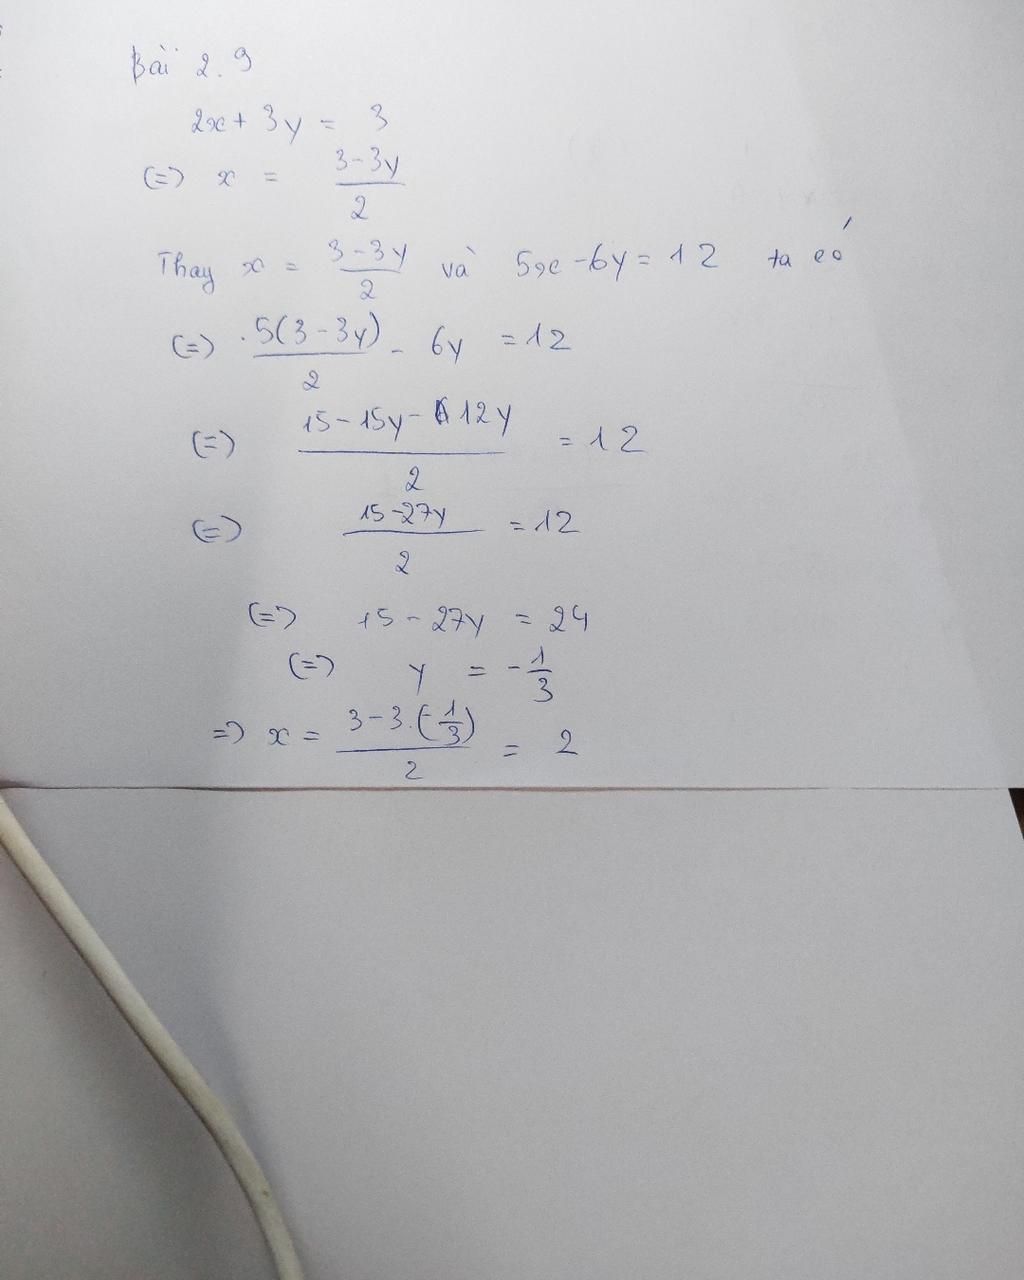 Bài 2.9
2x + 3y = 3
(=) x = (3-3y)/2
Thay x = (3-3y)/2 và 5x - 6y = 12 ta có
(=) .5(3-3y)/2 - 6y = 12
(=) (15-15y-12y)/2 = 12
(=) (15-27y)/2 = 12
(=) 15 - 27y = 24
(=) y = -1/3
=) x = (3-3.(-1/3))/2 = 2